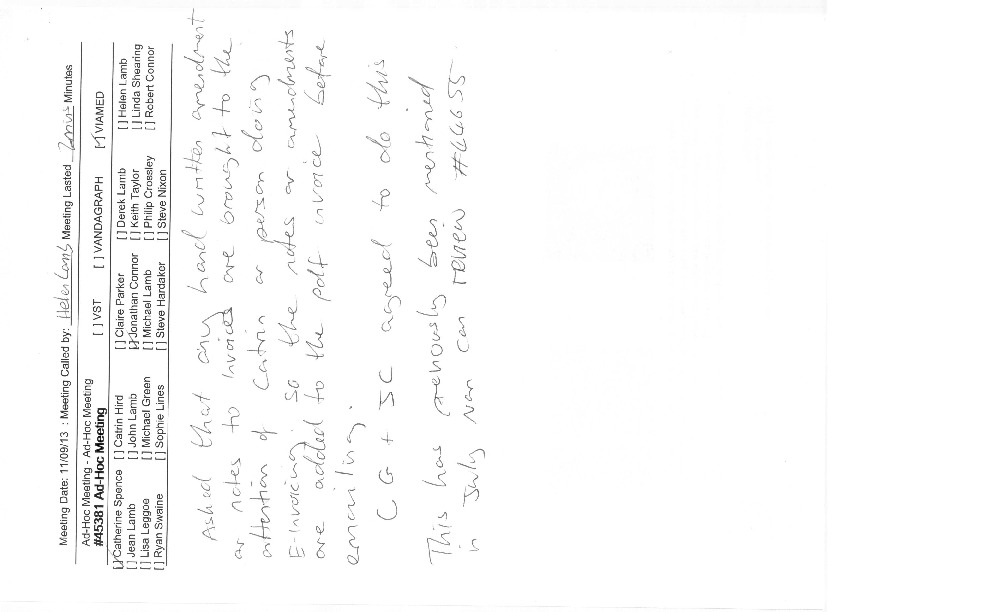 Meeting Date: 11/09/13 : Meeting Called by: Helen Lamb Meeting Lasted 2mins Minutes
Ad-Hoc Meeting - Ad-Hoc Meeting [ ] VST [ ] VANDAGRAPH [✓] VIAMED
#45381 Ad-Hoc Meeting
[✓] Catherine Spence [ ] Catrin Hird [ ] Claire Parker [ ] Derek Lamb [ ] Helen Lamb
[ ] Jean Lamb [ ] John Lamb [✓] Jonathan Connor [ ] Keith Taylor [ ] Linda Shearing
[ ] Lisa Leggoe [ ] Michael Green [ ] Michael Lamb [ ] Philip Crossley [ ] Robert Connor
[ ] Ryan Swaine [ ] Sophie Lines [ ] Steve Hardaker [ ] Steve Nixon
Asked that any hand written amendment
or notes to invoices are brought to the
attention of Catrin or person doing
E-Invoicing so the notes or amendments
are added to the pdf invoice before
emailing.
C G + JC agreed to do this
This has previously been mentioned
in July can review #44655